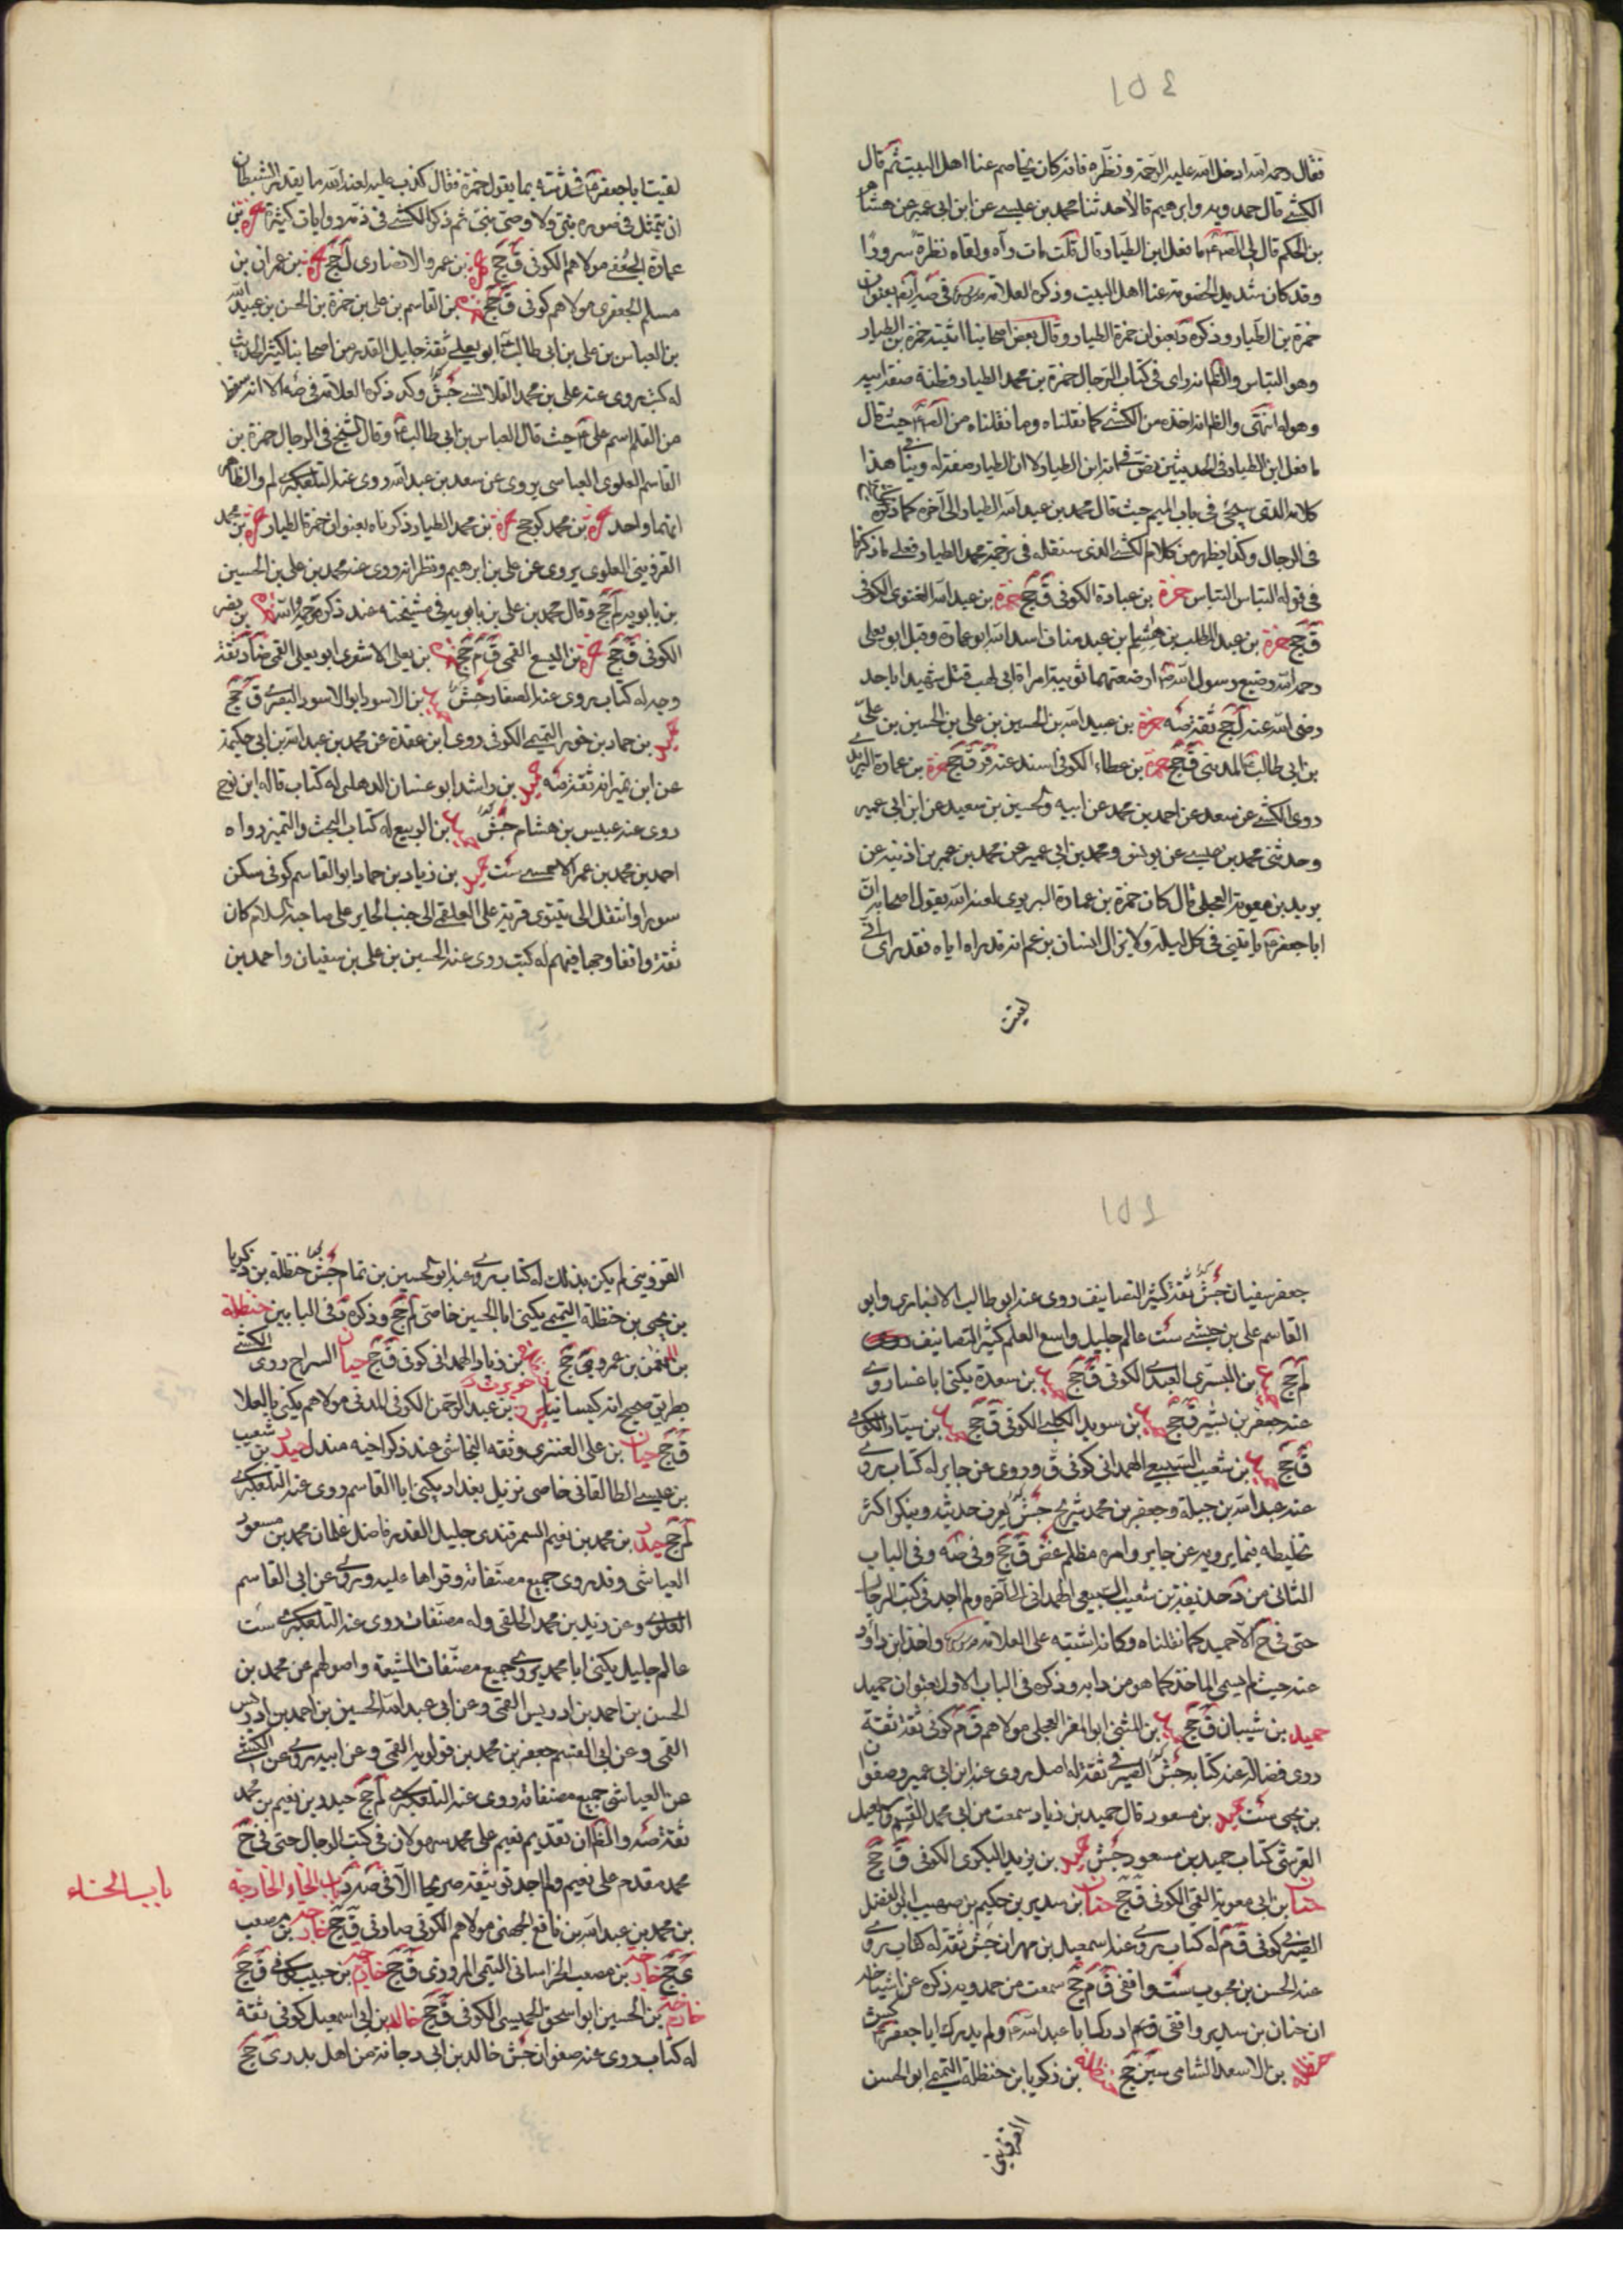 ١٥٤
فقال رحمه الله ادخل الله عليه الرحمة ونظره فانه كان يخاصم عنا اهل البيت ثم قال
الكشي قال حمدويه وابرهيم قالا حدثنا محمد بن عيسى عن ابن ابي عمير عن هشام
بن الحكم قال لي الص ع ما فعل ابن الطيار قال قلت مات رآه ولقاه نظرة سرورا
وقد كان شديد الخصومة عنا اهل البيت وذكره العلامة في صه بعنوان
حمزة بن الطيار وذكره د بعنوان حمزة الطيار وقال بعض اصحابنا اثبته حمزة بن الطيار
وهو التباس والظ انه راى في كتاب الرجال حمزة بن محمد الطيار فظنه صفة ابيه
وهو له انتهى والظ انه اخذه من الكشي كما نقلناه وما نقلناه من الص ع حيث قال
ما فعل ابن الطيار في الحديثين نص في انه ابن الطيار لا ان الطيار صفة له وينافي هذا
كلامه الذي سيجئ في باب الميم حيث قال محمد بن عبد الله الطيار الى آخره كما ذكره
في الرجال وكذا يظهر من كلام الكشي الذي سننقله في ترجمة محمد الطيار فعلى ما ذكرنا
في قوله التباس التباس حمزة بن عبادة الكوفي ق جخ حمزة بن عبد الله الغنوي الكوفي
ق جخ حمزة بن عبد المطلب بن هاشم بن عبد مناف اسد الله ابو عمارة وقيل ابو يعلى
رحمه الله رضيع رسول الله ص ارضعتهما ثويبة امراة ابي لهب قتل شهيدا باحد
رضى الله عنه ل جخ ثقة صه حمزة بن عبيد الله بن الحسين بن علي بن الحسين بن علي
بن ابي طالب ع المدني ق جخ حمزة بن عطاء الكوفي اسند عنه ق جخ حمزة بن عمارة البربري
روى الكشي عن سعد عن احمد بن محمد عن ابيه والحسين بن سعيد عن ابن ابي عمير
وحدثني محمد بن عيسى عن يونس ومحمد بن ابي عمير عن محمد بن عمر بن اذينة عن
بريد بن معوية العجلي قال كان حمزة بن عمارة البربري لعنه الله يقول لاصحابه ان
ابا جعفر ع ياتيني في كل ليلة ولا يزال انسان يزعم انه قد اراه اياه فقدر لى اني
لقيت
لقيت ابا جعفر ع فحدثته بما يقول حمزة فقال كذب عليه لعنة الله ما يقدر الشيطان
ان يتمثل في صورة نبي ولا وصي نبي ثم ذكر الكشي في ذمه روايات كثيرة حمزة بن
عمارة الجعفي مولاهم الكوفي ق جخ حمزة بن عمرو الانصاري ل جخ حمزة بن عمران بن
مسلم الجعفري مولاهم كوفي ق جخ حمزة بن القاسم بن علي بن حمزة بن الحسن بن عبيد الله
بن العباس بن علي بن ابي طالب ع ابو يعلى ثقة جليل القدر من اصحابنا كثير الحديث
له كتب روى عنه علي بن محمد القلانسي جش وكذا ذكره العلامة في صه الا انه سقط
من القلم اسم علي ع حيث قال العباس بن ابي طالب ع وقال الشيخ في الرجال حمزة بن
القاسم العلوي العباسي يروي عن سعد بن عبد الله روى عنه التلعكبري لم والظاهر
انهما واحد حمزة بن محمد كوجخ حمزة بن محمد الطيار ذكرناه بعنوان حمزة الطيار حمزة بن محمد
القزويني العلوي يروي عن علي بن ابرهيم ونظرائه روى عنه محمد بن علي بن الحسين
بن بابويه لم جخ وقال محمد بن علي بن بابويه في مشيخته عند ذكره رحمه الله حمزة بن نصر
الكوفي ق جخ حمزة بن اليسع القمي ق م جخ حمزة بن يعلى الاشعري ابو يعلى القمي ضا د ثقة
وجه له كتاب يروى عنه الصفار جش حميد بن الاسود ابو الاسود البصري ق جخ
حميد بن حماد بن خوار التميمي الكوفي روى ابن عقدة عن محمد بن عبد الله بن ابي حكيمة
عن ابن نمير انه ثقة صه حميد بن راشد ابو غسان الذهلي له كتاب قاله ابن نوح
روى عنه عبيس بن هشام جش حميد بن الربيع له كتاب البحث والتميز رواه
احمد بن محمد بن عمر الاحمسي ست حميد بن زياد بن حماد ابو القاسم كوفي سكن
سورا وانتقل الى نينوى قرية على العلقمي الى جنب الحاير على صاحبه السلام كان
ثقة واقفا وجها فيهم له كتب روى عنه الحسين بن علي بن سفيان واحمد بن
١٥٤
جعفر سفيان جش ثقة كثير التصانيف روى عنه ابو طالب الانباري وابو
القاسم علي بن حبشي ست عالم جليل واسع العلم كثير التصانيف
لم جخ حميد بن السرى العبدي الكوفي ق جخ حميد بن سعدة يكنى ابا غسان روى
عنه جعفر بن بشير ق جخ حميد بن سويد الكلبي الكوفي ق جخ حميد بن سيار الكوفي
ق جخ حميد بن شعيب السبيعي الهمداني كوفي ق وروى عن جابر له كتاب يروى
عنه عبد الله بن جبلة وجعفر بن محمد شريح جش يعرف حديثه وينكر اكثر
تخليطه فيما يرويه عن جابر وامره مظلم غض ق جخ وفي صه وفي الباب
الثاني من د حذيفة بن شعيب السبيعي الهمداني الى آخره ولم اجد في كتب الرجال
حتى في خ الا حميد كما نقلناه وكانه اشتبه على العلامة واخذ ابن داود
عنه حيث لم يسم الماخذ كما هو من دابه وذكره في الباب الاول بعنوان حميد
حميد بن شيبان ق جخ حميد بن المثنى ابو المغرا العجلي مولاهم ق م كوفي ثقة ثقة
روى فضالة عنه كتابه جش الصيرفي ثقة له اصل روى عنه ابن ابي عمير وصفوان
بن يحيى ست حميد بن مسعود قال حميد بن زياد سمعت من ابي محمد القسم بن اسمعيل
القرشي كتاب حميد بن مسعود جش حميد بن يزيد البكري الكوفي ق جخ
حنان بن ابي معوية القمي الكوفي ق جخ حنان بن سدير بن حكيم بن صهيب ابو الفضل
الصيرفي كوفي ق م له كتاب يروى عنه اسمعيل بن مهران جش ثقة له كتاب يروى
عنه الحسن بن محبوب ست واقفي ق م جخ سمعت من حمدويه ذكره عن اشياخه
ان حنان بن سدير واقفي ادرك ابا عبد الله ع ولم يدرك ابا جعفر ع كش
حنظلة بن الاسعد الشامي سين جخ حنظلة بن زكريا بن حنظلة التميمي ابو الحسن
القزويني
القزويني لم يكن بذلك له كتاب يروى عنه ابو الحسين بن تمام جش حنظلة بن زكريا
بن يحيى بن حنظلة التميمي يكنى ابا الحسين خاصي لم جخ وذكره د في البابين حنظلة
بن النعمن بن عمرو ى جخ بن زياد الهمداني كوفي ق جخ حيان السراج روى الكشي
بطريق صحيح انه كيسانيا بن عبد الرحمن الكوفي المدني مولاهم يكنى بالعلا
ق جخ حيان بن علي العنزي وثقه النجاشي عند ذكر اخيه مندل حيدر بن شعيب
بن عيسى الطالقاني خاصي نزيل بغداد يكنى ابا القاسم روى عنه التلعكبري
لم جخ حيدر بن محمد بن نعيم السمرقندي جليل القدر فاضل غلمان محمد بن مسعود
العياشي وقد روى جميع مصنفاته وقراها عليه وروى عن ابي القاسم
العلوي وعن زيد بن محمد الحلقي وله مصنفات روى عنه التلعكبري ست
عالم جليل يكنى ابا محمد يروى جميع مصنفات الشيعة واصولهم عن محمد بن
الحسن بن احمد بن ادريس القمي وعن ابي عبد الله الحسين بن احمد بن ادريس
القمي وعن ابي القسم جعفر بن محمد بن قولويه القمي وعن ابيه يروى عن الكشي
عن العياشي جميع مصنفاته روى عنه التلعكبري لم جخ حيدر بن نعيم بن محمد
ثقة صه د والظ ان تقديم نعيم على محمد سهو لان في كتب الرجال حتى في خ
محمد مقدم على نعيم ولم اجد توثيقه صريحا الا في صه د باب الخاء الخارجة
باب الخاء
بن محمد بن عبد الله بن نافع الجهني مولاهم الكوفي صاوقي ق جخ خارجة بن مصعب
ى جخ خارجة بن مصعب الخراساني التيمي المروزي ق جخ خازم بن حبيب كوفي ق جخ
خازم بن الحسين ابو اسحق الحميسي الكوفي ق جخ خالد بن ابي اسمعيل كوفي ثقة
له كتاب روى عنه صفوان جش خالد بن ابي دجانة من اهل بدر ى جخ